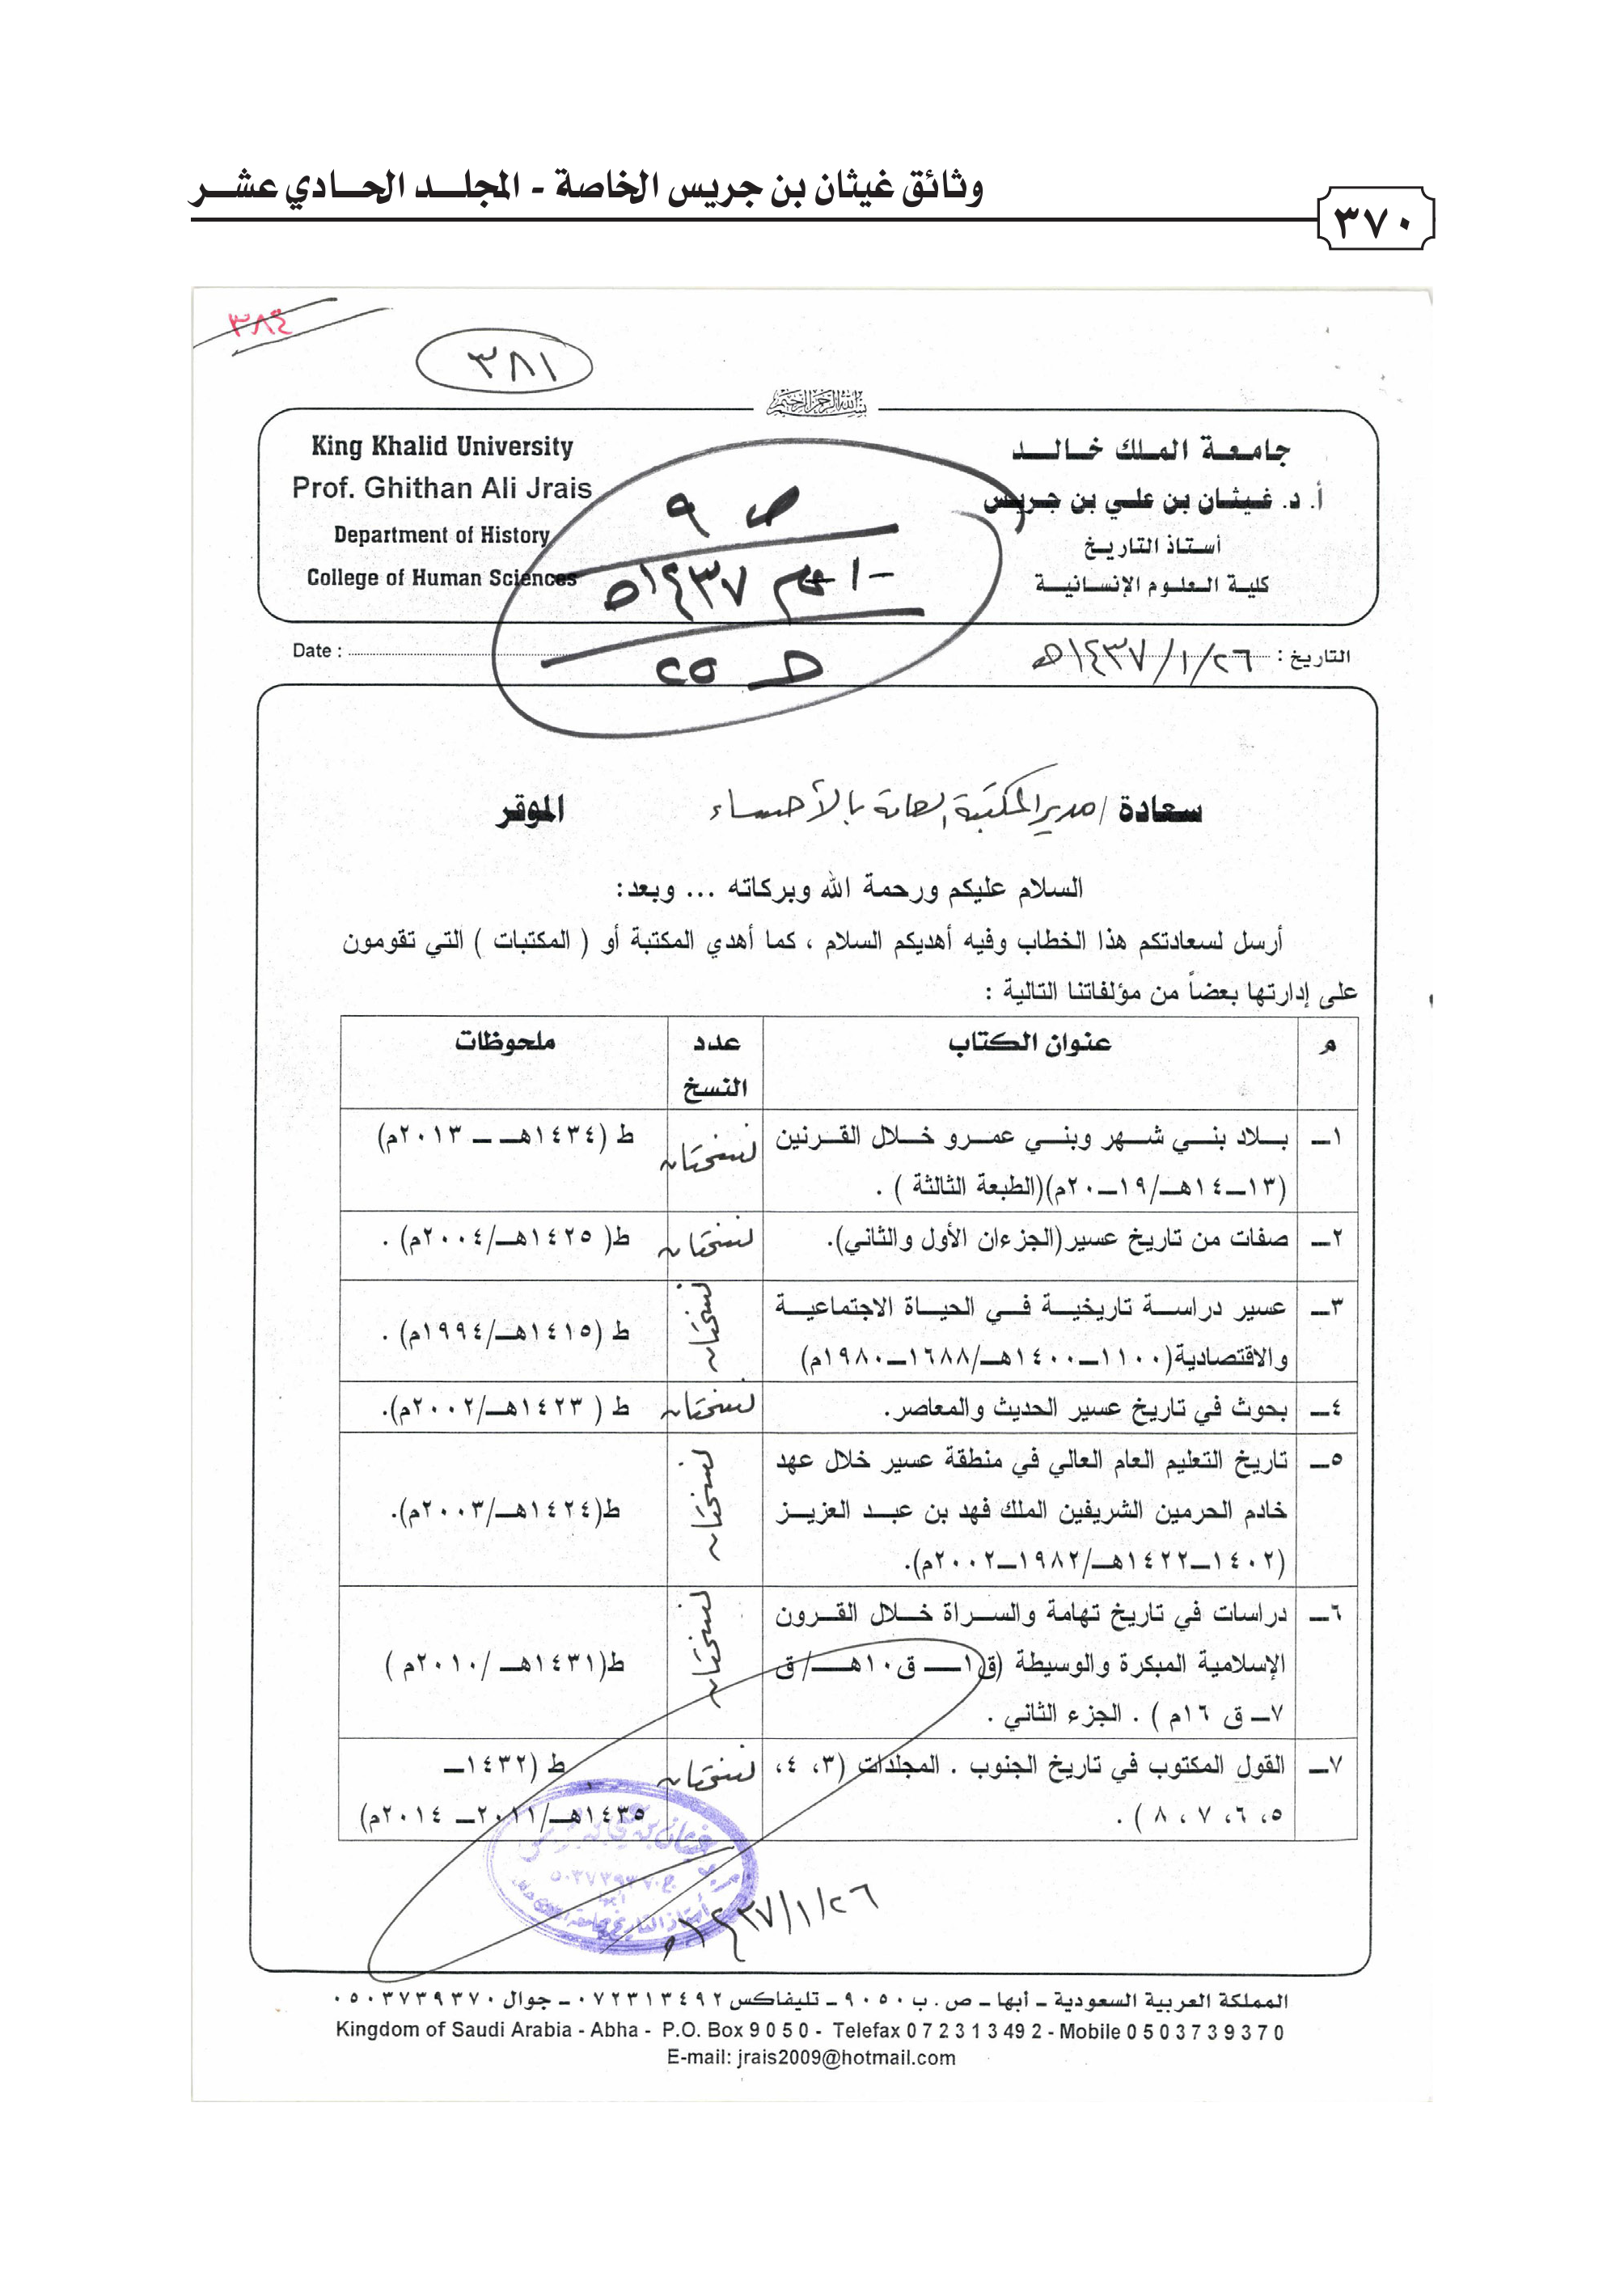 وثائق غيثان بن جريس الخاصة - المجلد الحادي عشر
٣٧٠
٣٨٤
٣٨١
بسم الله الرحمن الرحيم
جامعة الملك خالد
أ. د. غيثان بن علي بن جريس
أستاذ التاريخ
كلية العلوم الإنسانية
King Khalid University
Prof. Ghithan Ali Jrais
Department of History
College of Human Sciences
ص ٩
١٤٣٧هـ
ط ٢٥
التاريخ : ٢٦/ ١/ ١٤٣٧هـ
Date :
سعادة / مدير المكتبة العامة بالأحساء الموقر
السلام عليكم ورحمة الله وبركاته ... وبعد:
أرسل لسعادتكم هذا الخطاب وفيه أهديكم السلام ، كما أهدي المكتبة أو ( المكتبات ) التي تقومون
على إدارتها بعضاً من مؤلفاتنا التالية :
م عنوان الكتاب عدد النسخ ملحوظات
١ـ بلاد بني شهر وبني عمرو خلال القرنين نسختان ط (١٤٣٤هـ ـ ٢٠١٣م)
(١٣ـ١٤هـ/١٩ـ٢٠م)(الطبعة الثالثة ) .
٢ـ صفات من تاريخ عسير(الجزءان الأول والثاني). نسختان ط( ١٤٢٥هـ/٢٠٠٤م) .
٣ـ عسير دراسة تاريخية في الحياة الاجتماعية نسختان ط (١٤١٥هـ/١٩٩٤م) .
والاقتصادية(١١٠٠ـ١٤٠٠هـ/١٦٨٨ـ١٩٨٠م)
٤ـ بحوث في تاريخ عسير الحديث والمعاصر. نسختان ط ( ١٤٢٣هـ/٢٠٠٢م).
٥ـ تاريخ التعليم العام العالي في منطقة عسير خلال عهد
خادم الحرمين الشريفين الملك فهد بن عبد العزيز نسختان ط(١٤٢٤هـ/٢٠٠٣م).
(١٤٠٢ـ١٤٢٢هـ/١٩٨٢ـ٢٠٠٢م).
٦ـ دراسات في تاريخ تهامة والسراة خلال القرون
الإسلامية المبكرة والوسيطة (ق١ـ ق١٠هـ/ ق نسختان ط(١٤٣١هـ /٢٠١٠م )
٧ـ ق ١٦م ) . الجزء الثاني .
٧ـ القول المكتوب في تاريخ الجنوب . المجلدات (٣، ٤، نسختان ط (١٤٣٢ـ
٥، ٦، ٧ ، ٨ ) . ١٤٣٥هـ/٢٠١١ـ ٢٠١٤م)
٢٦/ ١/ ١٤٣٧هـ
المملكة العربية السعودية ـ أبها ـ ص. ب ٩٠٥٠ ـ تليفاكس ٠٧٢٣١٣٤٩٢ ـ جوال ٠٥٠٣٧٣٩٣٧٠
Kingdom of Saudi Arabia - Abha - P.O. Box 9 0 5 0 - Telefax 0 7 2 3 1 3 49 2 - Mobile 0 5 0 3 7 3 9 3 7 0
E-mail: jrais2009@hotmail.com